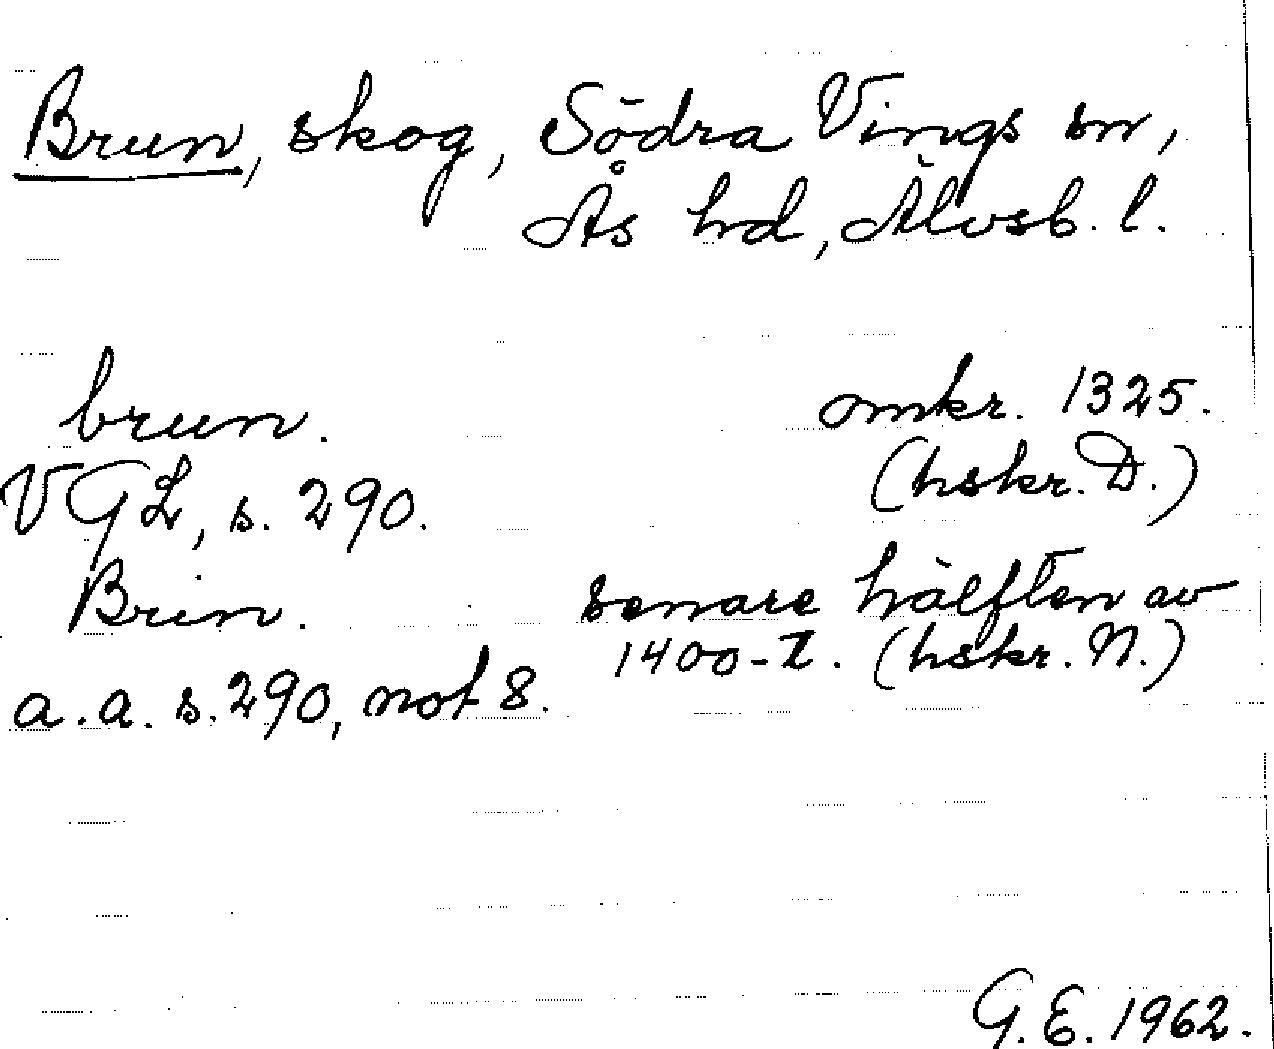 Brun, skog, Södra Vings sn,
Ås hd, Älvsb. l.
brun. omkr. 1325.
VGL, s. 290. (hskr. D.)
Brin. senare hälften av
1400-t. (hskr. N.)
a.a. s. 290, not 8.
G.E. 1962.